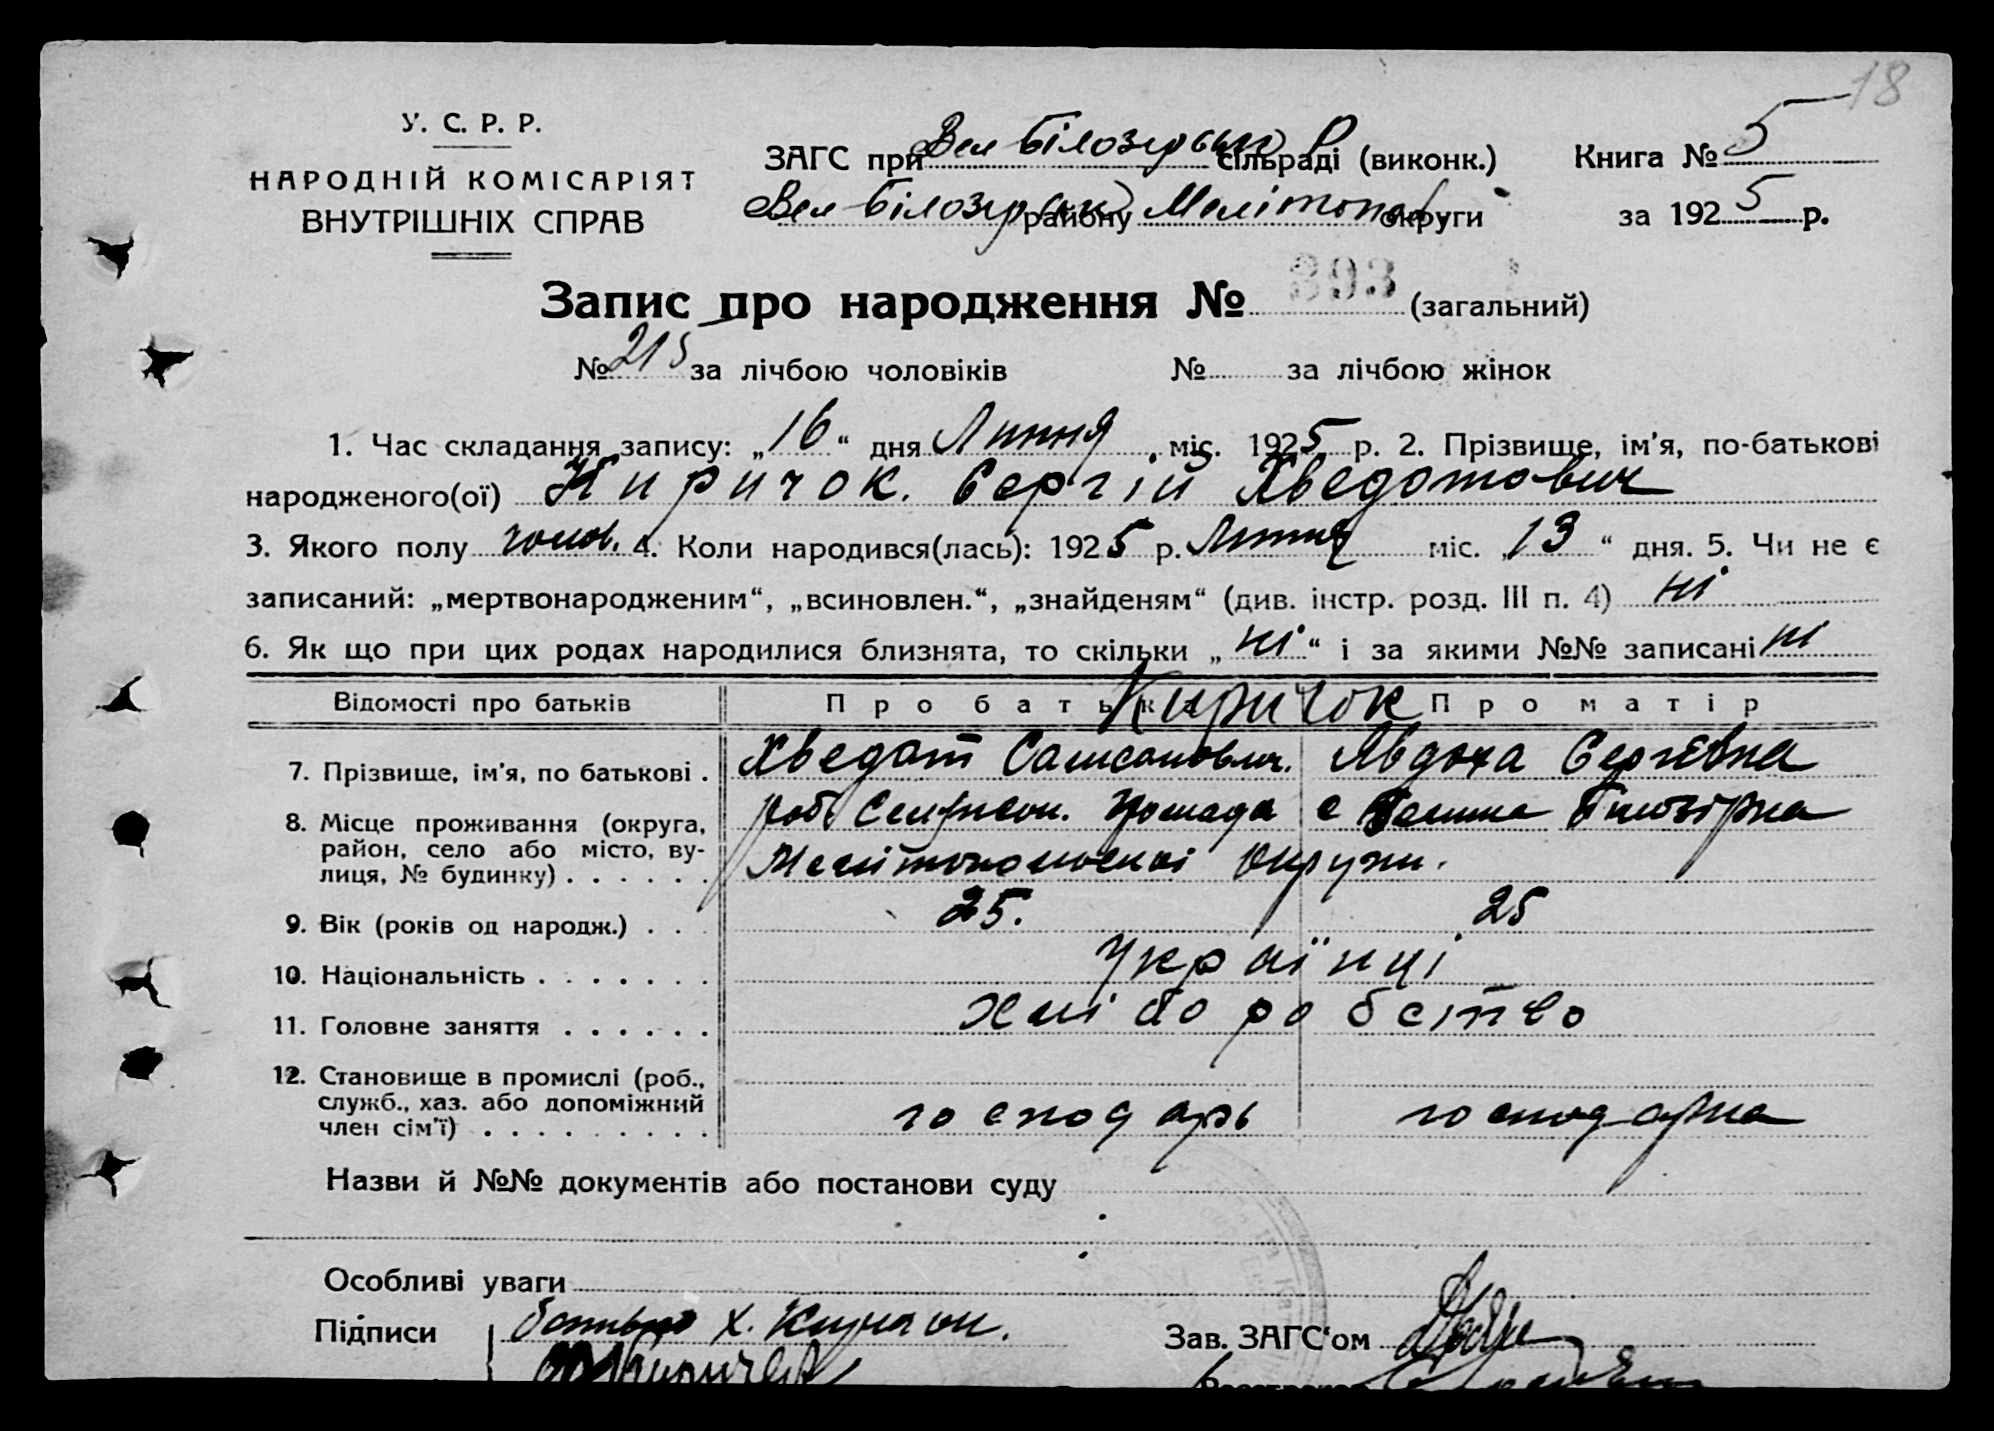 18
У. С. Р. Р.
НАРОДНІЙ КОМІСАРІЯТ
ВНУТРІШНІХ СПРАВ
ЗАГС при Вел Білозірськ Р сільраді (виконк.)
Вел Білозірськ району Мелітопол округи
Книга № 5
за 1925 р.
Запис про народження № 393 (загальний)
№ 215 за лічбою чоловіків № за лічбою жінок
1. Час складання запису: „16“ дня Липня міс. 1925 р. 2. Прізвище, ім'я, по-батькові
народженого(ої) Киричок. Сергій Хведотович
3. Якого полу чолов. 4. Коли народився(лась): 1925 р. Липня міс. „13“ дня. 5. Чи не є
записаний: „мертвонародженим“, „всиновлен.“, „знайденям“ (див. інстр. розд. III п. 4) ні
6. Як що при цих родах народилися близнята, то скільки „ні“ і за якими №№ записані ні
Відомості про батьків Про батька Киричок Про матір
7. Прізвище, ім'я, по батькові . Хведот Самсонович. Явдоха Сергєвна
8. Місце проживання (округа, район, село або місто, вулиця, № будинку) . . . . . . Громада с Велика Білозірка
Мелітопольської округи.
9. Вік (років од народж.) . . . 25. 25
10. Національність . . . . . . . Українці
11. Головне заняття . . . . . . Хліборобство
12. Становище в промислі (роб., служб., хаз. або допоміжний член сім'ї) . . . . . . . . . господарь господарка
Назви й №№ документів або постанови суду
Особливі уваги
Підписи батько Х. Киричок.
Зав. ЗАГС'ом